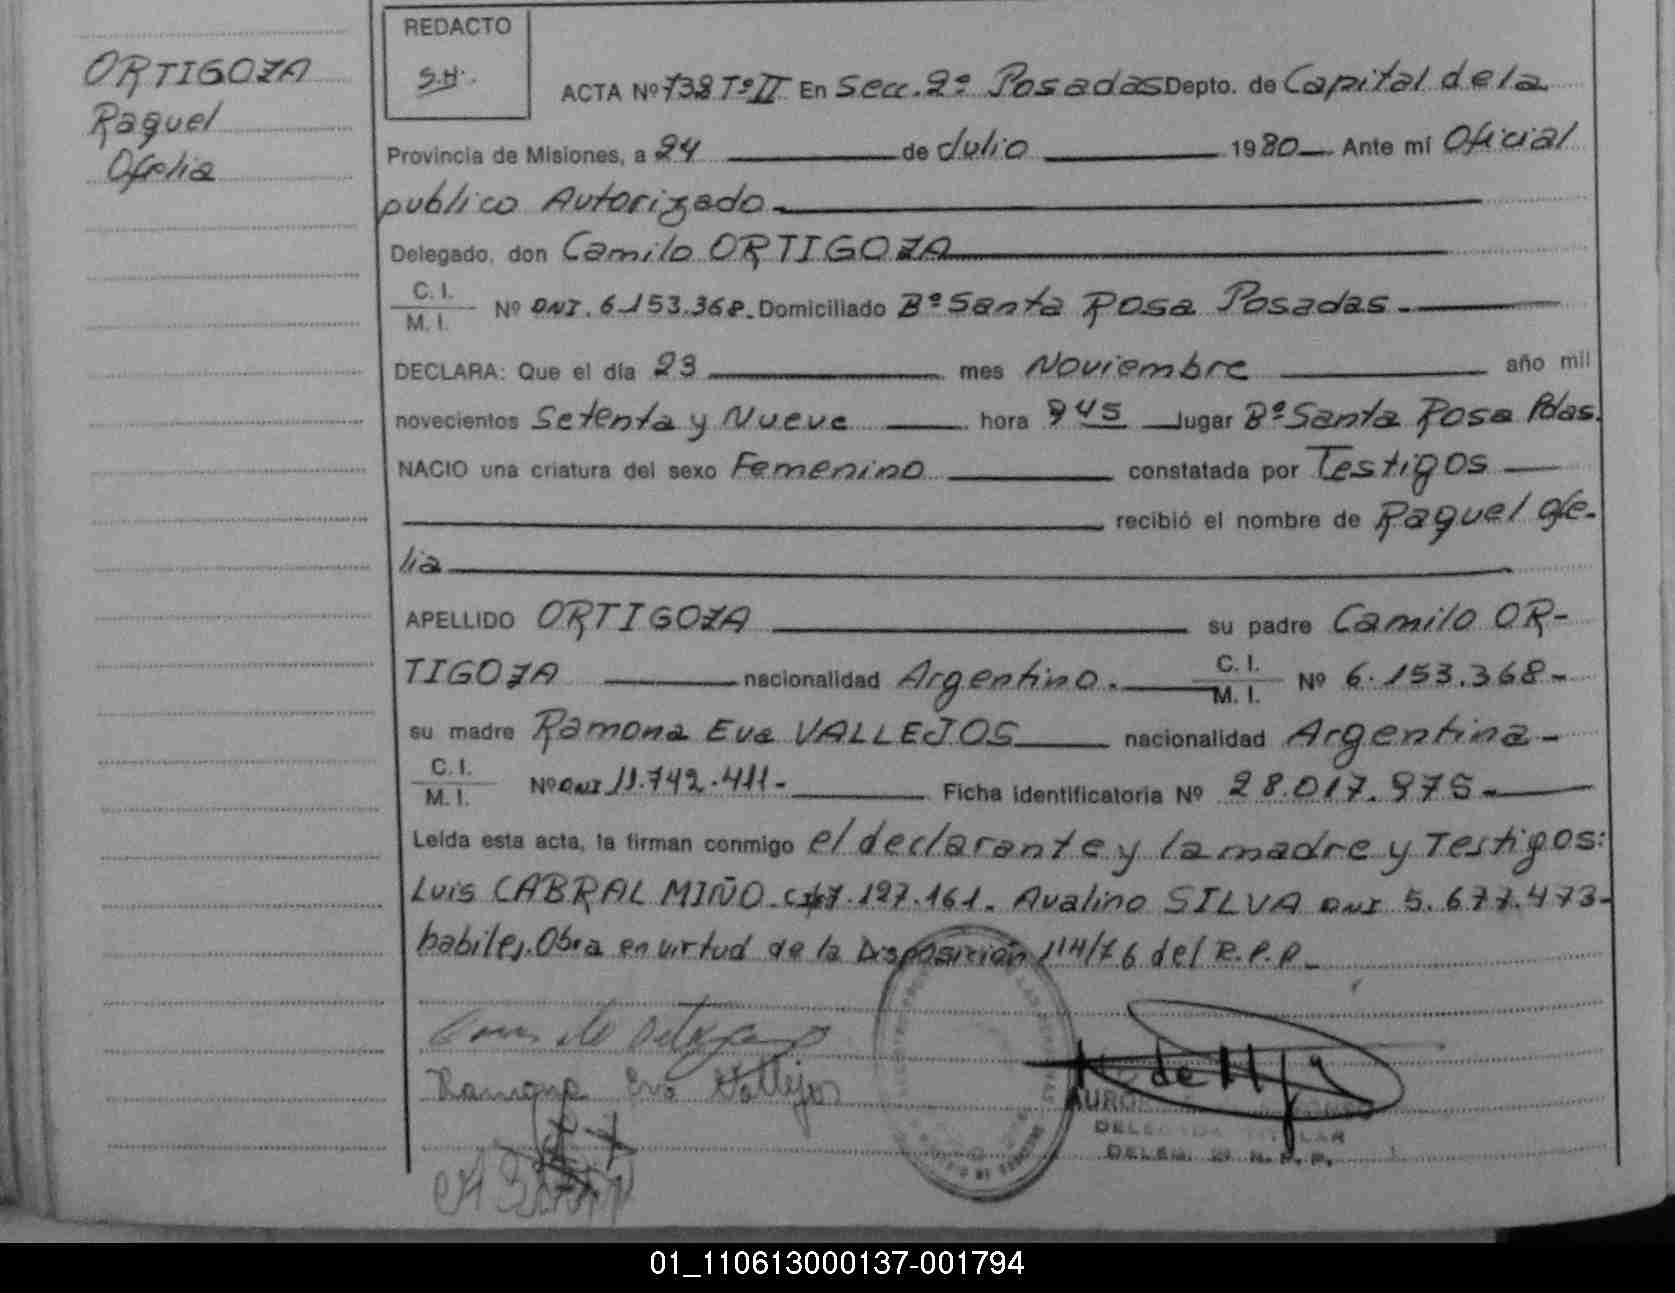 ORTIGOZA
Raquel
Ofelia
REDACTO
S.H.
ACTA Nº 738 Tº II En Secc. 2º Posadas Depto. de Capital de la
Provincia de Misiones, a 24 de Julio 1980 Ante mí Oficial
publico Autorizado
Delegado, don Camilo ORTIGOZA
C. I.
M. I. Nº DNI. 6.153.368. Domiciliado Bº Santa Rosa Posadas.
DECLARA: Que el día 23 mes Noviembre año mil
novecientos Setenta y Nueve hora 945 lugar Bº Santa Rosa Pdas.
NACIO una criatura del sexo Femenino constatada por Testigos
recibió el nombre de Raquel Ofe-
lia
APELLIDO ORTIGOZA su padre Camilo OR-
TIGOZA nacionalidad Argentino. C. I. M. I. Nº 6.153.368-
su madre Ramona Eva VALLEJOS nacionalidad Argentina-
C. I.
M. I. Nº DNI 11.742.411- Ficha identificatoria Nº 28.017.975-
Leída esta acta, la firman conmigo el declarante y la madre y Testigos:
Luis CABRAL MIÑO. 7.197.161. Avalino SILVA DNI 5.677.473-
habiles. Obra en virtud de la Disposición 114/76 del R.P.P.
Ramona Eva Vallejos
DELEG. R.P.P.
01_110613000137-001794